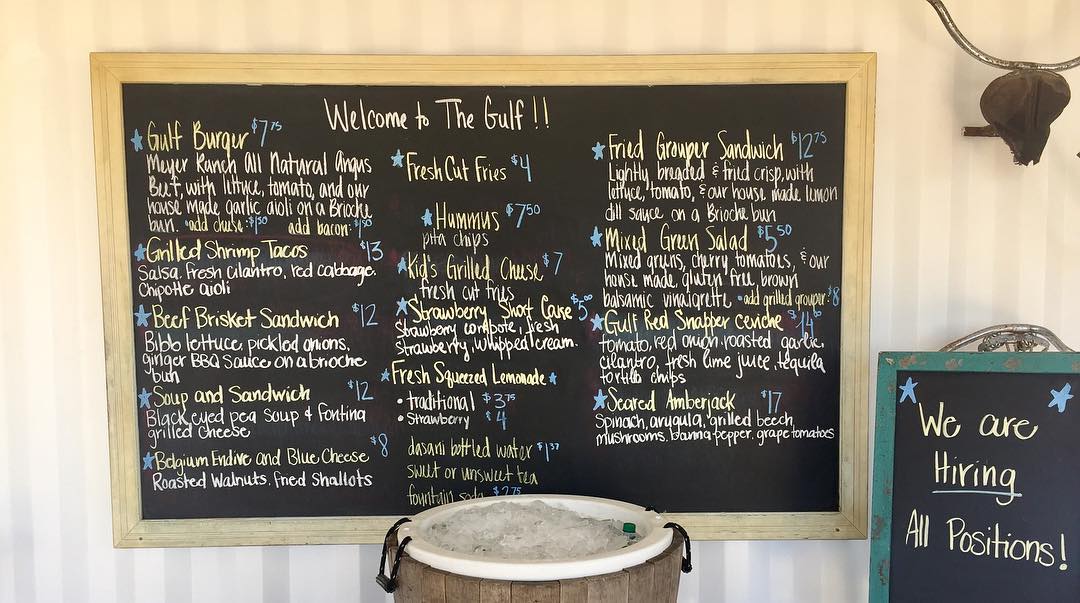 Welcome to The Gulf!!
Gulf Burger $7.75
Meyer Ranch All Natural Angus
Beef, with lettuce, tomato, and our
house made garlic aioli on a Brioche
bun. •add cheese: $1.50 add bacon: $1.50
Grilled Shrimp Tacos $13
Salsa, fresh cilantro, red cabbage,
Chipotle aioli
Beef Brisket Sandwich $12
Bibb lettuce, pickled onions,
ginger BBQ Sauce on a brioche
bun
Soup and Sandwich $12
Black eyed pea soup & fontina
grilled cheese
Belgium Endive and Blue Cheese $8
Roasted Walnuts, fried shallots
Fresh Cut Fries $4
Hummus $7.50
pita chips
Kid's Grilled Cheese $7
fresh cut fries
Strawberry Short Cake $5.00
Strawberry compote, fresh
strawberry, whipped cream.
Fresh Squeezed Lemonade
• traditional $3.75
• Strawberry $4
dasani bottled water $1.37
sweet or unsweet tea
fountain soda $2.75
Fried Grouper Sandwich $12.75
Lightly breaded & fried crisp, with
lettuce, tomato, & our house made lemon
dill sauce on a Brioche bun
Mixed Green Salad $5.50
Mixed greens, cherry tomatoes, & our
house made, gluten free, brown
balsamic vinaigrette •add grilled grouper: $8
Gulf Red Snapper ceviche
tomato, red onion, roasted garlic,
cilantro, fresh lime juice, tequila
tortilla chips
Seared Amberjack $17
Spinach, arugula, grilled beech
mushrooms, banna pepper, grape tomatoes
We are
Hiring
All Positions!